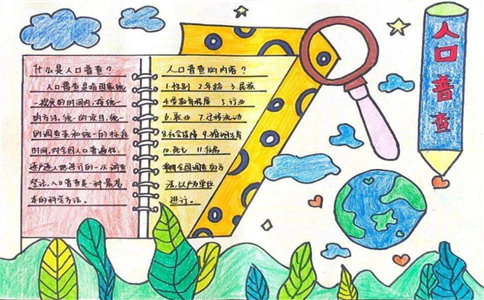 人口普查
什么是人口普查?
人口普查是指国家统
一规定的时间内,统
的方法,统一的项目,统一
的调查表和统一的标准
时间,对全国人口普遍
逐户逐人地进行的一次调查
登记,人口普查是一种最基
本的科学方法。
人口普查的内容?
1.性别 2.年龄 3.民族
4.受教育程度 5.行业
6.职业 7.迁移流动
8.社会保障 9.婚姻生育
10.死亡 11.住房
全国调查的方
法,以户为单位
进行。